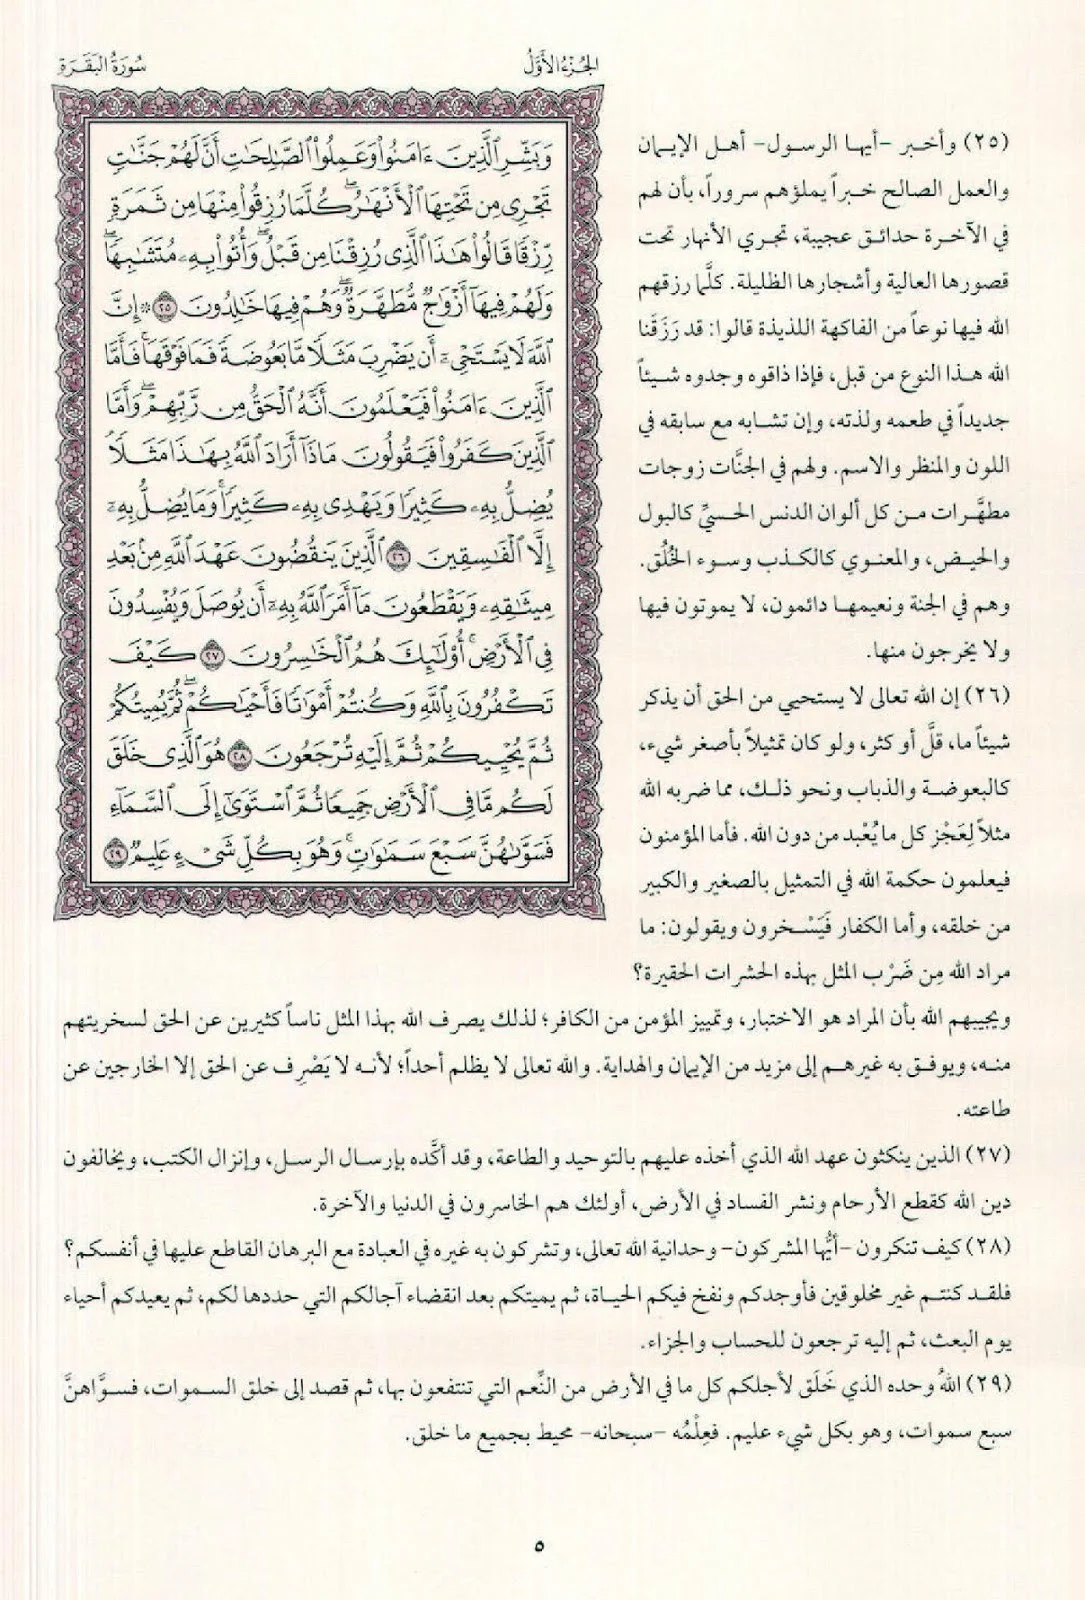 الجُزْءُ الأَوَّلُ
سُورَةُ البَقَرَةِ
وَبَشِّرِ ٱلَّذِينَ ءَامَنُواْ وَعَمِلُواْ ٱلصَّٰلِحَٰتِ أَنَّ لَهُمْ جَنَّٰتٍ
تَجْرِى مِن تَحْتِهَا ٱلْأَنْهَٰرُ ۖ كُلَّمَا رُزِقُواْ مِنْهَا مِن ثَمَرَةٍ
رِّزْقًا قَالُواْ هَٰذَا ٱلَّذِى رُزِقْنَا مِن قَبْلُ ۖ وَأُتُواْ بِهِۦ مُتَشَٰبِهًا ۖ
وَلَهُمْ فِيهَآ أَزْوَٰجٌ مُّطَهَّرَةٌ ۖ وَهُمْ فِيهَا خَٰلِدُونَ ٢٥ ۞ إِنَّ
ٱللَّهَ لَا يَسْتَحْىِۦٓ أَن يَضْرِبَ مَثَلًا مَّا بَعُوضَةً فَمَا فَوْقَهَا ۚ فَأَمَّا
ٱلَّذِينَ ءَامَنُواْ فَيَعْلَمُونَ أَنَّهُ ٱلْحَقُّ مِن رَّبِّهِمْ ۖ وَأَمَّا
ٱلَّذِينَ كَفَرُواْ فَيَقُولُونَ مَاذَآ أَرَادَ ٱللَّهُ بِهَٰذَا مَثَلًا ۘ
يُضِلُّ بِهِۦ كَثِيرًا وَيَهْدِى بِهِۦ كَثِيرًا ۚ وَمَا يُضِلُّ بِهِۦٓ
إِلَّا ٱلْفَٰسِقِينَ ٢٦ ٱلَّذِينَ يَنقُضُونَ عَهْدَ ٱللَّهِ مِنۢ بَعْدِ
مِيثَٰقِهِۦ وَيَقْطَعُونَ مَآ أَمَرَ ٱللَّهُ بِهِۦٓ أَن يُوصَلَ وَيُفْسِدُونَ
فِى ٱلْأَرْضِ ۚ أُوْلَٰٓئِكَ هُمُ ٱلْخَٰسِرُونَ ٢٧ كَيْفَ
تَكْفُرُونَ بِٱللَّهِ وَكُنتُمْ أَمْوَٰتًا فَأَحْيَٰكُمْ ۖ ثُمَّ يُمِيتُكُمْ
ثُمَّ يُحْيِيكُمْ ثُمَّ إِلَيْهِ تُرْجَعُونَ ٢٨ هُوَ ٱلَّذِى خَلَقَ
لَكُم مَّا فِى ٱلْأَرْضِ جَمِيعًا ثُمَّ ٱسْتَوَىٰٓ إِلَى ٱلسَّمَآءِ
فَسَوَّىٰهُنَّ سَبْعَ سَمَٰوَٰتٍ ۚ وَهُوَ بِكُلِّ شَىْءٍ عَلِيمٌ ٢٩
(٢٥) وأخبر -أيها الرسول- أهل الإيمان
والعمل الصالح خبراً يملؤهم سروراً، بأن لهم
في الآخرة حدائق عجيبة، تجري الأنهار تحت
قصورها العالية وأشجارها الظليلة. كلَّما رزقهم
الله فيها نوعاً من الفاكهة اللذيذة قالوا: قد رَزَقَنا
الله هذا النوع من قبل، فإذا ذاقوه وجدوه شيئاً
جديداً في طعمه ولذته، وإن تشابه مع سابقه في
اللون والمنظر والاسم. ولهم في الجنَّات زوجات
مطهَّرات من كل ألوان الدنس الحسيِّ كالبول
والحيض، والمعنوي كالكذب وسوء الخُلُق.
وهم في الجنة ونعيمها دائمون، لا يموتون فيها
ولا يخرجون منها.
(٢٦) إن الله تعالى لا يستحيي من الحق أن يذكر
شيئاً ما، قلَّ أو كثر، ولو كان تمثيلاً بأصغر شيء،
كالبعوضة والذباب ونحو ذلك، مما ضربه الله
مثلاً لِعَجْز كل ما يُعْبد من دون الله. فأما المؤمنون
فيعلمون حكمة الله في التمثيل بالصغير والكبير
من خلقه، وأما الكفار فَيَسْخرون ويقولون: ما
مراد الله مِن ضَرْب المثل بهذه الحشرات الحقيرة؟
ويجيبهم الله بأن المراد هو الاختبار، وتمييز المؤمن من الكافر؛ لذلك يصرف الله بهذا المثل ناساً كثيرين عن الحق لسخريتهم
منه، ويوفق به غيرهم إلى مزيد من الإيمان والهداية. والله تعالى لا يظلم أحداً؛ لأنه لا يَصْرِف عن الحق إلا الخارجين عن
طاعته.
(٢٧) الذين ينكثون عهد الله الذي أخذه عليهم بالتوحيد والطاعة، وقد أكَّده بإرسال الرسل، وإنزال الكتب، ويخالفون
دين الله كقطع الأرحام ونشر الفساد في الأرض، أولئك هم الخاسرون في الدنيا والآخرة.
(٢٨) كيف تنكرون -أيُّها المشركون- وحدانية الله تعالى، وتشركون به غيره في العبادة مع البرهان القاطع عليها في أنفسكم؟
فلقد كنتم غير مخلوقين فأوجدكم ونفخ فيكم الحياة، ثم يميتكم بعد انقضاء آجالكم التي حددها لكم، ثم يعيدكم أحياء
يوم البعث، ثم إليه ترجعون للحساب والجزاء.
(٢٩) اللهُ وحده الذي خَلَق لأجلكم كل ما في الأرض من النِّعم التي تنتفعون بها، ثم قصد إلى خلق السموات، فسوَّاهنَّ
سبع سموات، وهو بكل شيء عليم. فعِلْمُه -سبحانه- محيط بجميع ما خلق.
٥